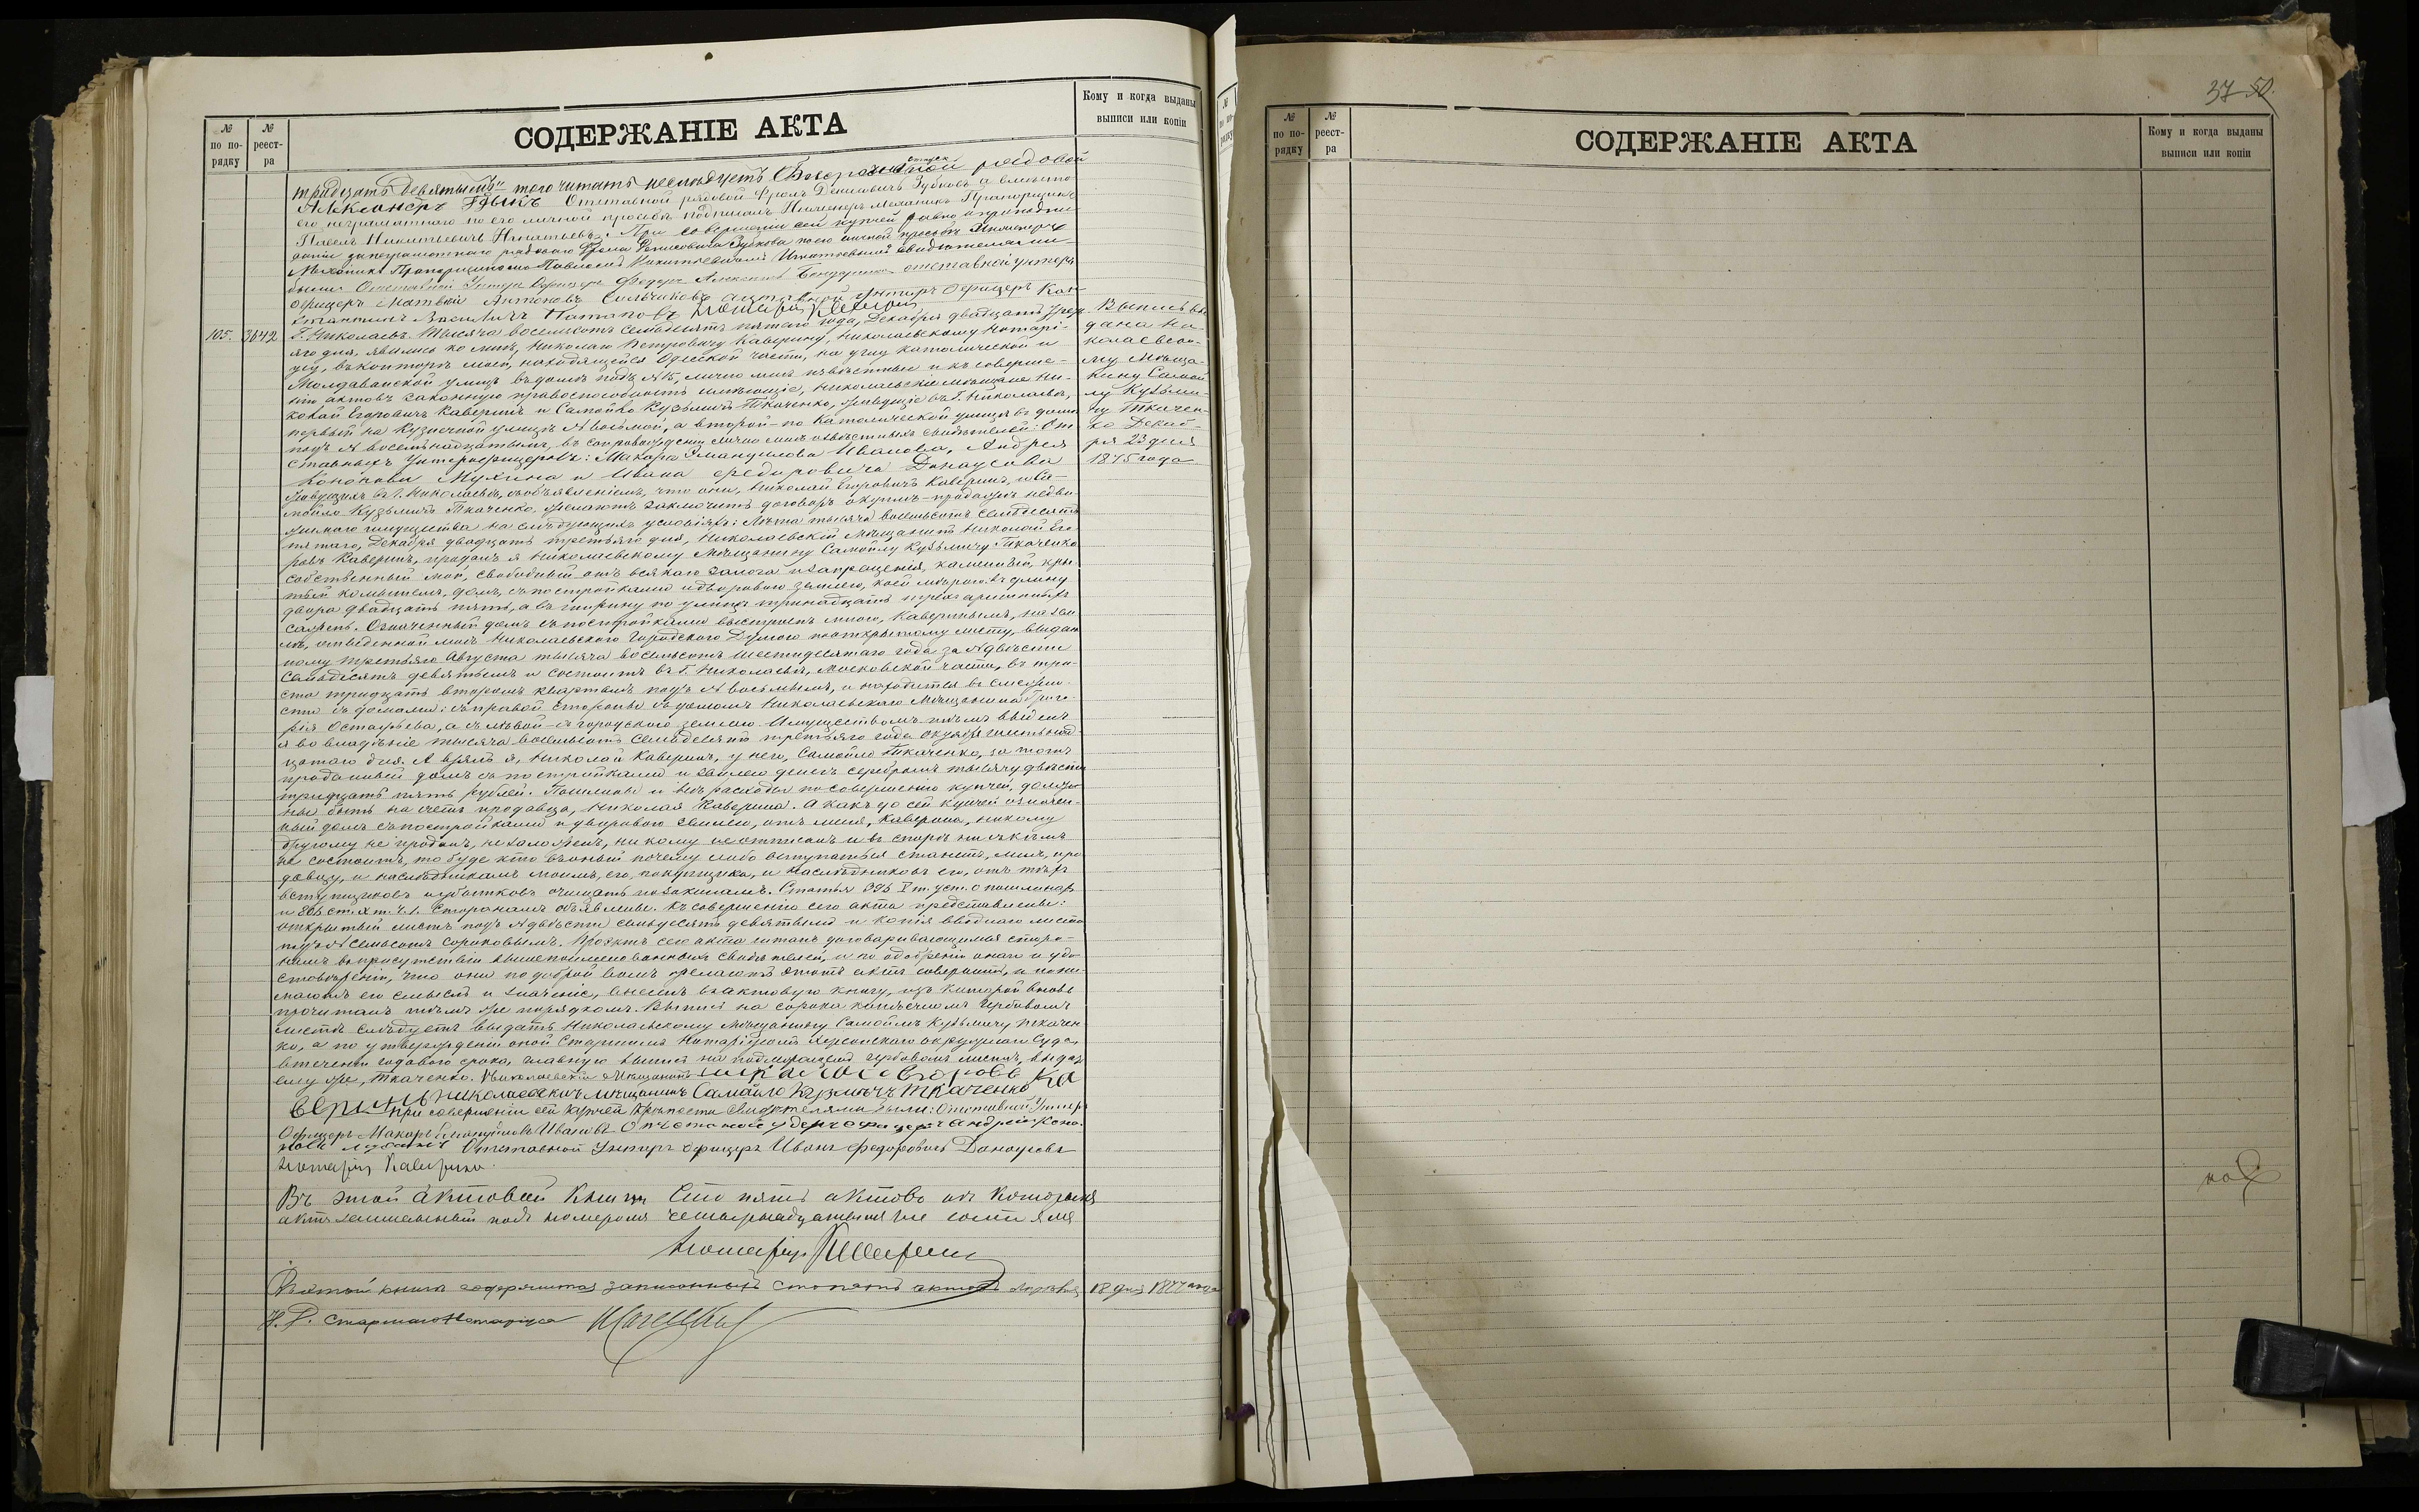 № по порядку
№ реестра
СОДЕРЖАНІЕ АКТА
Кому и когда выданы выписи или копіи
тридцать девятымъ" того читать неслѣдуетъ отставной рядовой
Александръ Отставной рядовой Фролъ Денисовичъ Зубковъ а вмѣсто
его неграмотнаго по его личной просьбѣ подписалъ Инженеръ Механикъ Прапорщикъ
Павелъ Никитьевичъ Игнатьевъ. При совершеніи сей купчей равно и при подпи-
саніи за неграмотнаго рядоваго Фрола Денисовича Зубкова по его личной просьбѣ Инженеръ
Механикъ Прапорщикомъ Павломъ Никитьевичемъ Игнатьевымъ свидѣтелями
были: Отставной Унтеръ Офицеръ Федоръ Алексѣевъ Бондаренко отставной унтеръ
офицеръ Матвѣй Антоновъ Сольчаковъ отставной Унтеръ Офицеръ Кон-
стантинъ Васильичъ Потаповъ Нотаріусъ Каверинъ
105. 3642 Г. Николаевъ. Тысяча восемьсотъ семьдесятъ пятаго года, Декабря двадцать треть-
яго дня, явились ко мнѣ, Николаю Петровичу Каверину, Николаевскому Нотарі-
усу, въ контору мою, находящуюся Одесской части, на углу Католической и
Молдаванской улицъ въ домѣ подъ № 15, лично мнѣ извѣстные и къ соверше-
нію актовъ законную правоспособность имѣющіе, Николаевскіе мѣщане Ни-
колай Егоровичъ Каверинъ и Самойло Кузьмичъ Ткаченко, живущіе въ г. Николаевѣ,
первый на Кузнечной улицѣ № восьмой, а второй – по Католической улицѣ въ домѣ
подъ № восемьнадцатымъ, въ сопровожденіи лично мнѣ извѣстныхъ свидѣтелей: От-
ставныхъ Унтеръ офицеровъ: Макара Эмануилова Иванова, Андрея
Кононова Мухина и Ивана Федоровича Донаусова
живущихъ въ г. Николаевѣ, съ объявленіемъ, что они, Николай Егоровичъ Каверинъ, и Са-
мойло Кузьмичъ Ткаченко, желаютъ заключить договоръ о куплѣ-продажѣ недви-
жимаго имущества на слѣдующихъ условіяхъ: Лѣта тысяча восемьсотъ семьдесятъ
пятаго, Декабря двадцать третьяго дня, Николаевскій Мѣщанинъ Николай Его-
ровъ Каверинъ, продалъ я Николаевскому Мѣщанину Самойлу Кузьмичу Ткаченко
собственный мой, свободный отъ всякаго залога и запрещенія, каменный, кры-
тый камышемъ, домъ, съ постройками и дворовою землею, коей мѣрою: въ длину
двора двадцать пять, а въ ширину по улицѣ тринадцать трехъ аршинныхъ
сажень. Означенный домъ съ постройками выстроенъ мною, Каверинымъ, на зем-
лѣ, отведенной мнѣ Николаевскою Городскою Думою по открытому листу, выдан-
ному третьяго Августа тысяча восемьсотъ шестидесятаго года за № двѣсти
семьдесятъ девятымъ и состоитъ въ г. Николаевѣ, Московской части, въ три-
ста тридцать второмъ кварталѣ подъ № восьмымъ, и находится въ смежно-
сти съ домами: съ правой стороны съ домомъ Николаевскаго Мѣщанина Григо-
рія Остафьева, а съ лѣвой – съ городскою землею. Имуществомъ тѣмъ введенъ
я во владѣніе тысяча восемьсотъ семьдесятъ третьяго года Октября шестьнад-
цатаго дня. А взялъ я, Николай Каверинъ, у него, Самойло Ткаченко, за тотъ
проданный домъ съ постройками и землею денегъ серебромъ тысячу двѣсти
тридцать пять рублей. Пошлины и всѣ расходы по совершенію купчей, долж-
ны быть на счетъ продавца, Николая Каверина. А какъ до сей купчей означен-
ный домъ съ постройками и дворовою землею, отъ меня, Каверина, никому
другому не проданъ, не заложенъ, никому не отписанъ и въ спорѣ ни съ кѣмъ
не состоитъ, то буде кто въ оный почему либо вступаться станетъ, мнѣ, про-
давцу, и наслѣдникамъ моимъ, его, покупщика, и наслѣдниковъ его, отъ тѣхъ
вступщиковъ и убытковъ очищать по законамъ. Статья 393 V т. уст. о пошлинахъ
и 206 ст. X т. ч. 1. сторонамъ объявлены. Къ совершенію сего акта представлены:
открытый листъ подъ № двѣсти семьдесятъ девятымъ и копія вводнаго листа
подъ № семьсотъ сороковымъ. Проэктъ сего акта читанъ договаривающимся сторо-
намъ въ присутствіи вышепоименованныхъ свидѣтелей, и по одобреніи онаго и удо-
стовѣреніи, что они по доброй волѣ желаютъ этотъ актъ совершить, и пони-
маютъ его смыслъ и значеніе, внесенъ въ актовую книгу, изъ которой вновь
прочитанъ тѣмъ же порядкомъ. Выпись на сорока копѣечномъ гербовомъ
листѣ слѣдуетъ выдать Николаевскому Мѣщанину Самойлѣ Кузьмичу Ткачен-
ко, а по утвержденіи оной Старшимъ Нотаріусомъ Херсонскаго окружнаго Суда,
втеченіи годоваго срока, главную выпись на гербовомъ листѣ, выдать
ему же, Ткаченко. Николаевскій Мѣщанинъ Николай Егоровъ Ка
веринъ Николаевскій мѣщанинъ Самойло Кузмичъ Ткаченко
При совершеніи сей купчей крѣпости свидѣтелями были: Отставной Унтеръ
Офицеръ Макаръ Эмануиловъ Ивановъ Отставной ундеръ офицеръ андрей Коно-
новъ мухинъ Отставной Унтеръ офицеръ Иванъ Федоровичъ Донаусовъ
Нотаріусъ Каверинъ.
Выпись вы
дана Ни-
колаевско-
му Мѣща-
нину Самой
лу Кузьми-
чу Ткачен-
ко Декаб-
ря 23 дня
1875 года
Въ этой актовой книгѣ сто пять актовъ изъ которыхъ
актъ записанный подъ номеромъ четырнадцатымъ не состоялся
Нотаріусъ Каверинъ
Въ этой книгѣ содержится записанныхъ сто пять актовъ 18 дня 1877 года
И. Д. Старшаго Нотаріуса
37 50.
№ по порядку
№ реестра
СОДЕРЖАНІЕ АКТА
Кому и когда выданы выписи или копіи